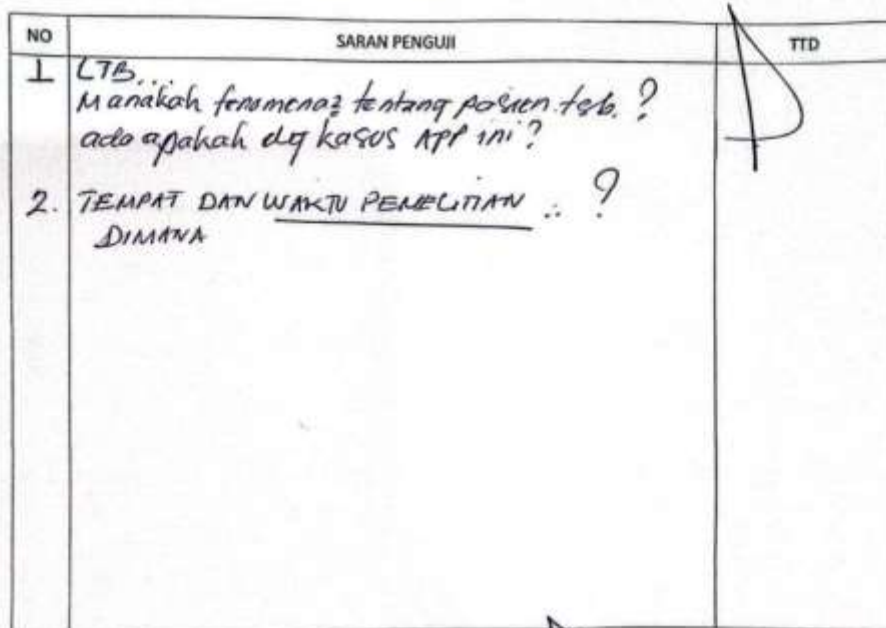 NO SARAN PENGUJI TTD
1 LTB...
Manakah fenomena2 tentang pasien tsb. ?
ada apakah dg kasus APP ini ?
2. TEMPAT DAN WAKTU PENELITIAN .. ?
DIMANA